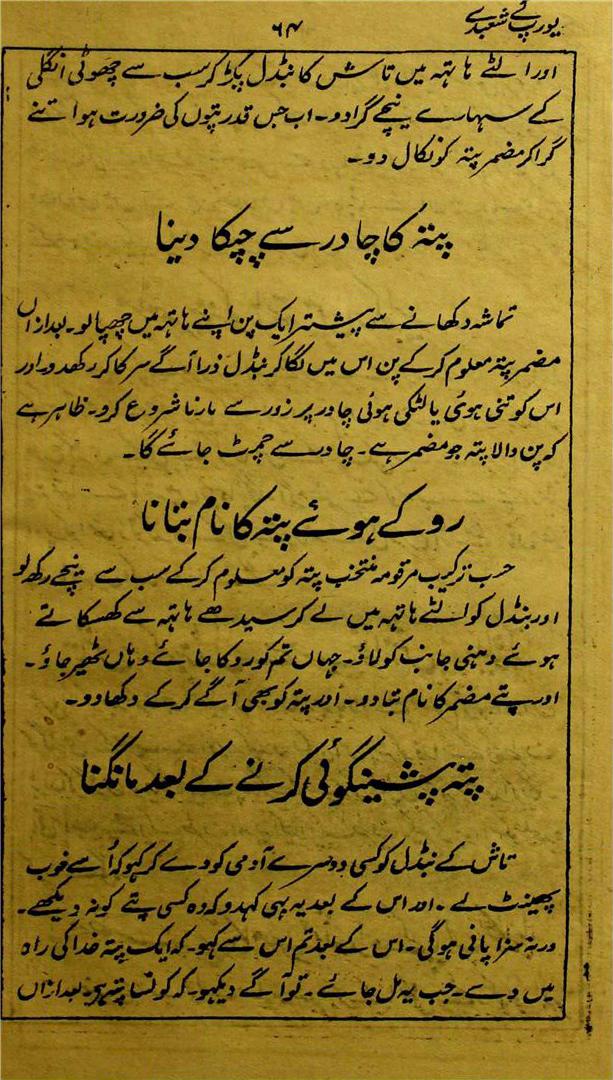 یورپ کے شعبدے
۶۴
اور الٹے ہاتہہ میں تاش کا بنڈل پکڑ کر سب سے چھوٹی انگلی
کے سہارے نیچے گرا دو۔ اب جس قدر پتوں کی ضرورت ہو اتنے
گرا کر مضمر پتہ کو نکال دو۔
پتہ کا چادر سے چپکا دینا
تماشہ دکھانے سے پیشتر ایک پن اپنے ہاتہہ میں چھپا لو۔ بعد ازاں
مضمر پتہ معلوم کر کے پن اس میں لگا کر بنڈل ذرا آگے سر کا کر رکھدو اور
اس کو تنی ہوئی یا لٹکی ہوئی چادر پر زور سے مارنا شروع کرو۔ ظاہر ہے
کہ پن والا پتہ جو مضمر ہے۔ چادر سے چمٹ جائے گا۔
روکے ہوئے پتہ کا نام بتانا
حسب ترکیب مرقومہ منتخب پتہ کو معلوم کر کے سب سے نیچے رکھ لو
اور بنڈل کو الٹے ہاتہہ میں لے کر سیدھے ہاتہہ سے کھسکاتے
ہوئے دہنی جانب کو لاؤ۔ جہاں تم کو روکا جائے وہاں ٹھیر جاؤ۔
اور پتے مضمر کا نام بتا دو۔ اور پتہ کو بھی آگے کر کے دکھا دو۔
پتہ پیشینگوئی کرنے کے بعد مانگنا
تاش کے بنڈل کو کسی دوسرے آدمی کو دے کر کہو کہ اُسے خوب
پھینٹ لے۔ اور اس کے بعد یہ بہی کہدو کہ وہ کسی پتے کو نہ دیکھے۔
ورنہ سزا پانی ہو گی۔ اس کے بعد تم اس سے کہو۔ کہ ایک پتہ خدا کی راہ
میں دے۔ جب یہ مل جائے۔ تو آگے دیکہو۔ کہ کونسا پتہ ہے۔ بعد ازاں